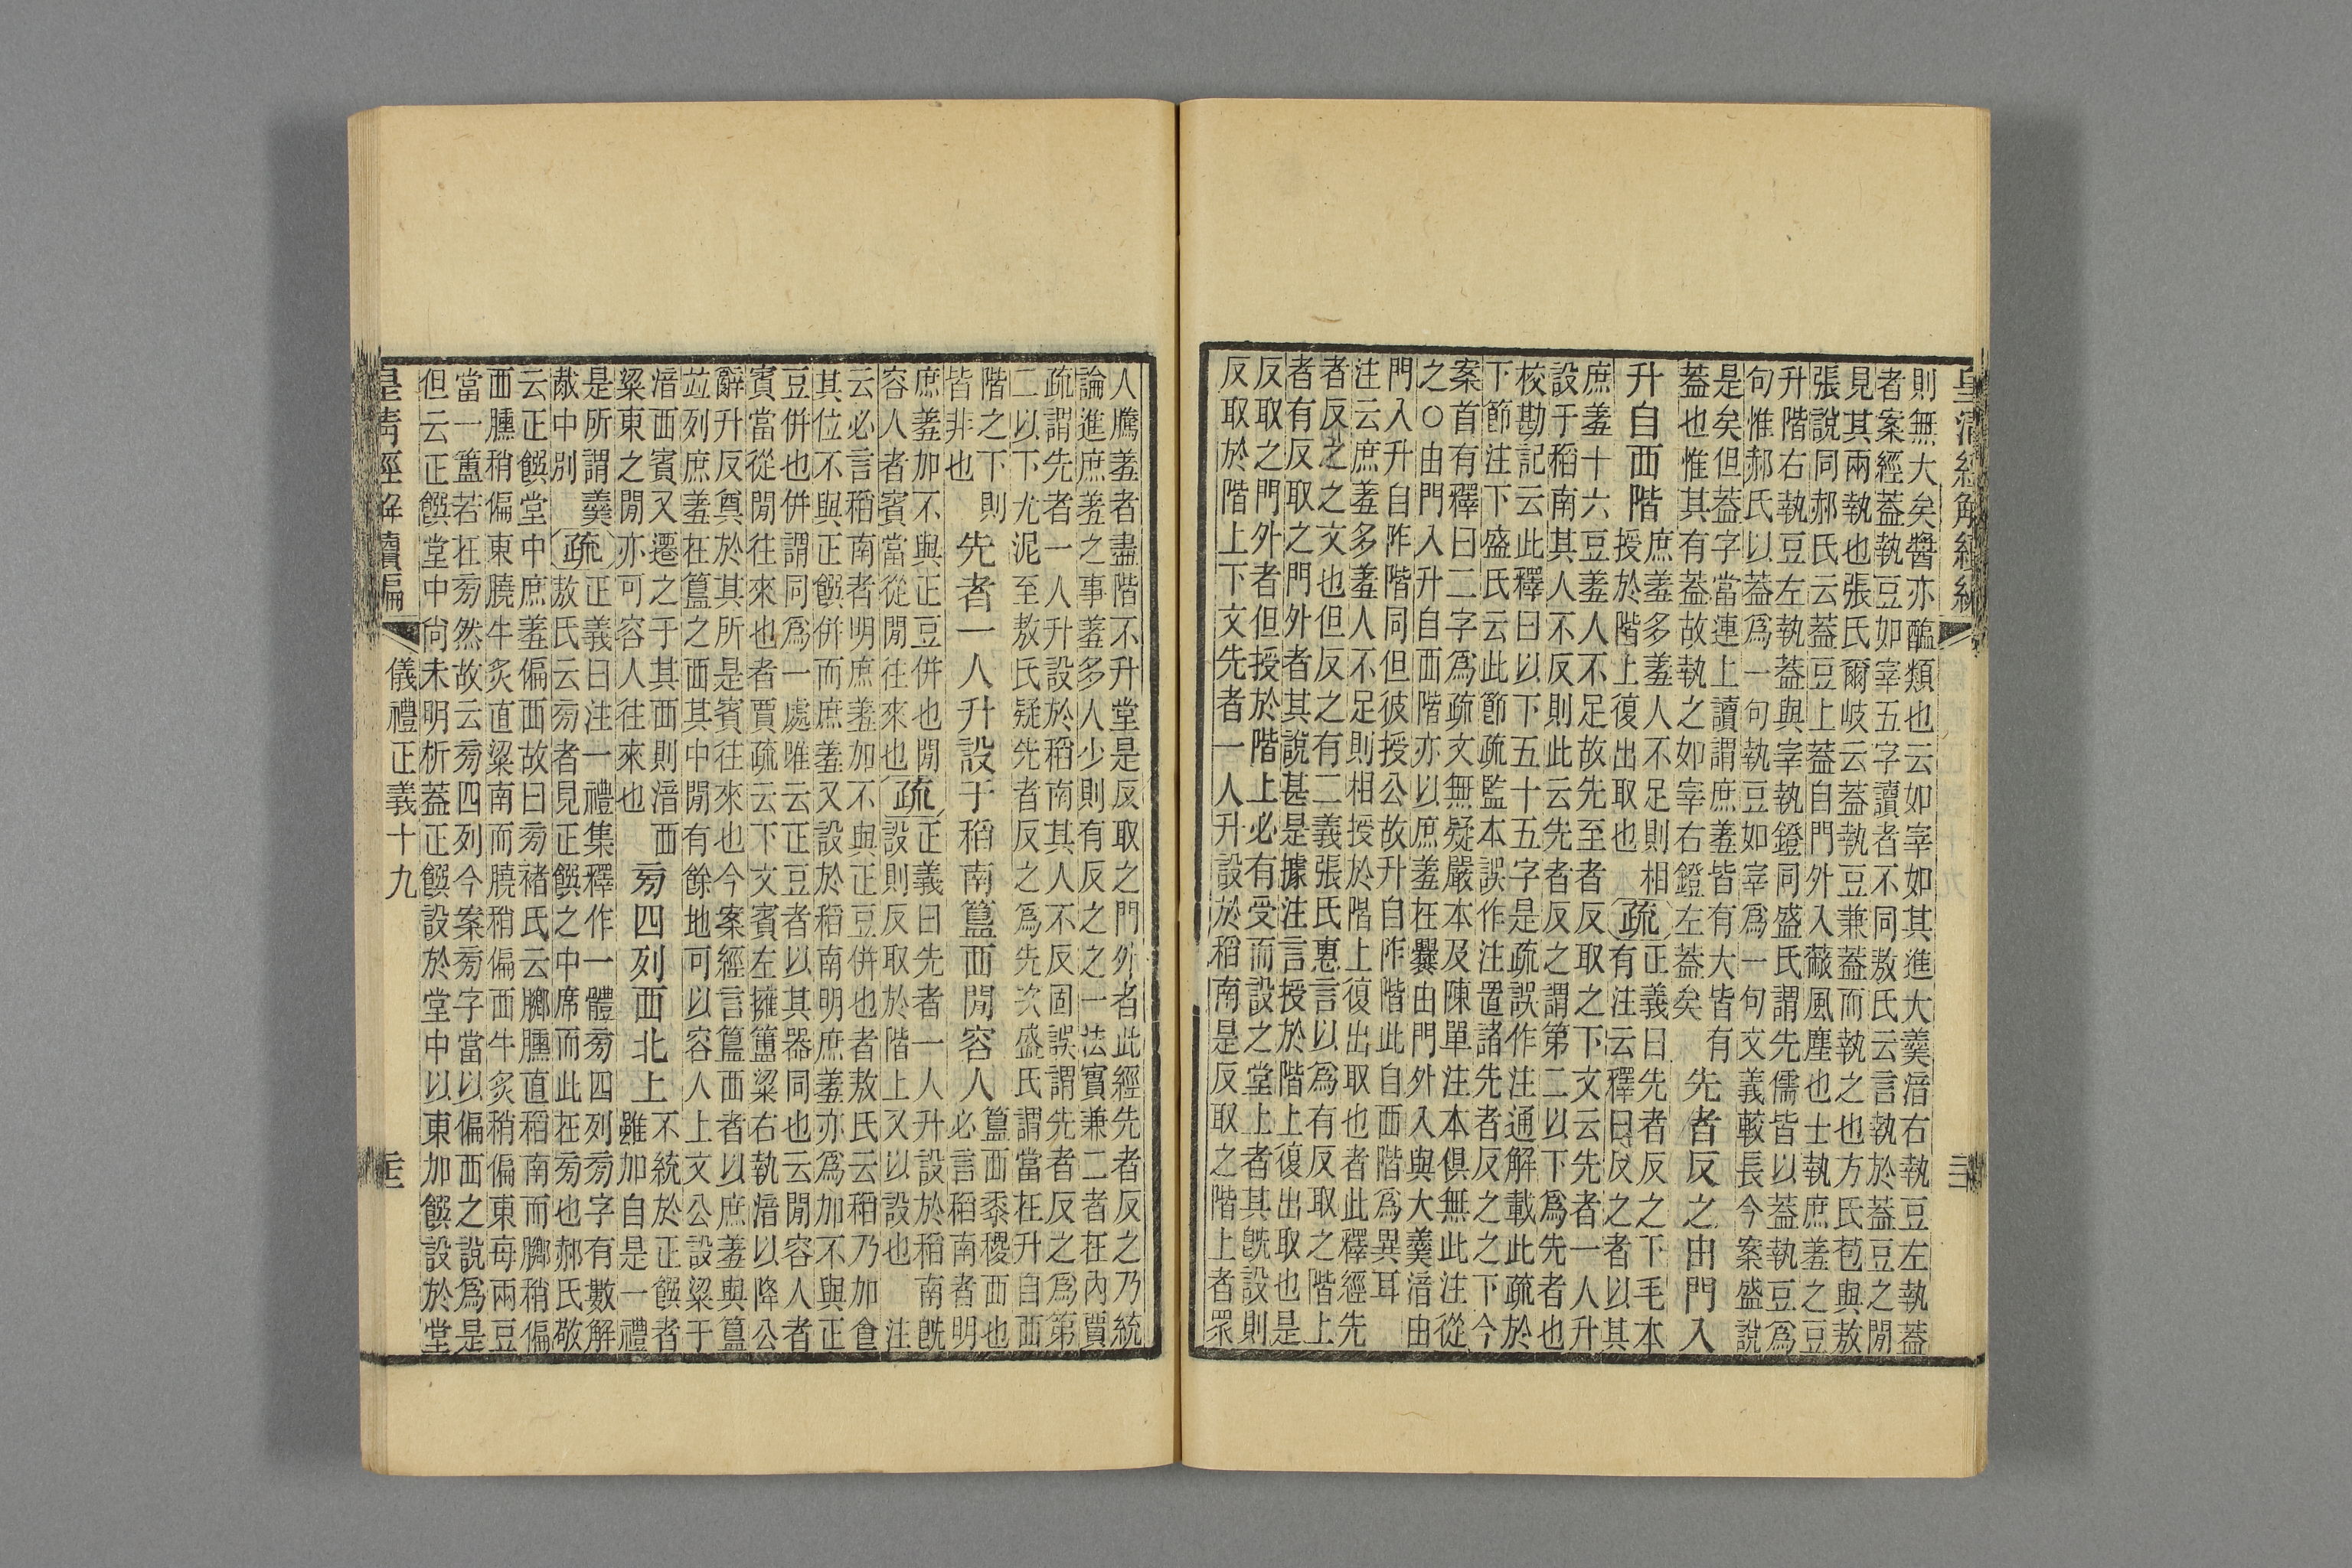 皇清經解續編
則無大矣醬亦醢類也云如宰如其進大羹湆右執豆左執蓋
者案經蓋執豆如宰五字讀者不同敖氏云言執於蓋豆之閒
見其兩執也張氏爾岐云蓋執豆兼蓋而執之也方氏苞與敖
張說同郝氏云蓋豆上蓋自門外入蔽風塵也士執庶羞之豆
升階右執豆左執蓋與宰執鐙同盛氏謂先儒皆以蓋執豆爲
句惟郝氏以蓋爲一句執豆如宰爲一句文義較長今案盛說
是矣但蓋字當連上讀謂庶羞皆有大皆有
蓋也惟其有蓋故執之如宰右鐙左蓋矣
先者反之由門入
升自西階
庶羞多羞人不足則相
授於階上復出取也
疏
正義曰先者反之下毛本
有注云釋曰反之者以其
庶羞十六豆羞人不足故先至者反取之下文云先者一人升
設于稻南其人不反則此云先者反之謂第二以下爲先者也
校勘記云此釋曰以下五十五字是疏誤作注通解載此疏於
下節注下盛氏云此節疏監本誤作注置諸先者反之之下今
案首有釋曰二字爲疏文無疑嚴本及陳單注本俱無此注從
之○由門入升自西階亦以庶羞在爨由門外入與大羹湆由
門入升自阼階同但彼授公故升自阼階此自西階爲異耳
注云庶羞多羞人不足則相授於階上復出取也者此釋經先
者反之之文也但反之有二義張氏惠言以爲有反取之階上
者有反取之門外者其說甚是據注言授於階上復出取也是
反取之門外者但授於階上必有受而設之堂上者其旣設則
反取於階上下文先者一人升設於稻南是反取之階上者眾
人騰羞者盡階不升堂是反取之門外者此經先者反之乃統
論進庶羞之事羞多人少則有反之之一法實兼二者在內賈
疏謂先者一人升設於稻南其人不反固誤謂先者反之爲第
二以下尤泥至敖氏疑先者反之爲先次盛氏謂當在升自西
階之下則
皆非也
先者一人升設于稻南簋西閒容人
簋西黍稷西也
必言稻南者明
庶羞加不與正豆併也閒
容人者賓當從閒往來也
疏
正義曰先者一人升設於稻南旣
設則反取於階上又以設也 注
云必言稻南者明庶羞加不與正豆併也者敖氏云稻乃加食
其位不與正饌併而庶羞又設於稻南明庶羞亦爲加不與正
豆併也併謂同爲一處雎云正豆者以其器同也云閒容人者
賓當從閒往來也者賈疏云下文賓左擁簠粱右執湆以降公
辭升反奠於其所是賓往來也今案經言簋西者以庶羞與簋
竝列庶羞在簋之西其中閒有餘地可以容人上文公設粱于
湆西賓又遷之于其西則湆西
粱東之閒亦可容人往來也
㫄四列西北上
不統於正饌者
雖加自是一禮
是所謂羹
胾中別
疏
正義曰注一禮集釋作一體㫄四列㫄字有數解
敖氏云㫄者見正饌之中席而此在㫄也郝氏敬
云正饌堂中庶羞偏西故曰㫄褚氏云膷臐直稻南而膷稍偏
西臐稍偏東膮牛炙直粱南而膮稍偏西牛炙稍偏東每兩豆
當一簠若在㫄然故云㫄四列今案㫄字當以偏西之說爲是
但云正饌堂中尙未明析蓋正饌設於堂中以東加饌設於堂
皇清經解續編
儀禮正義十九